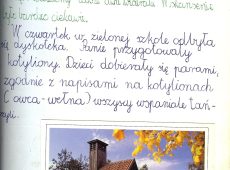 było bardzo ciekawie.
W czwartek w zielonej szkole odbyła
się dyskoteka. Panie przygotowały
kotyliony. Dzieci dobierały się parami,
zgodnie z napisami na kotylionach
(owca-wełna) wszyscy wspaniale tań-
czyli.